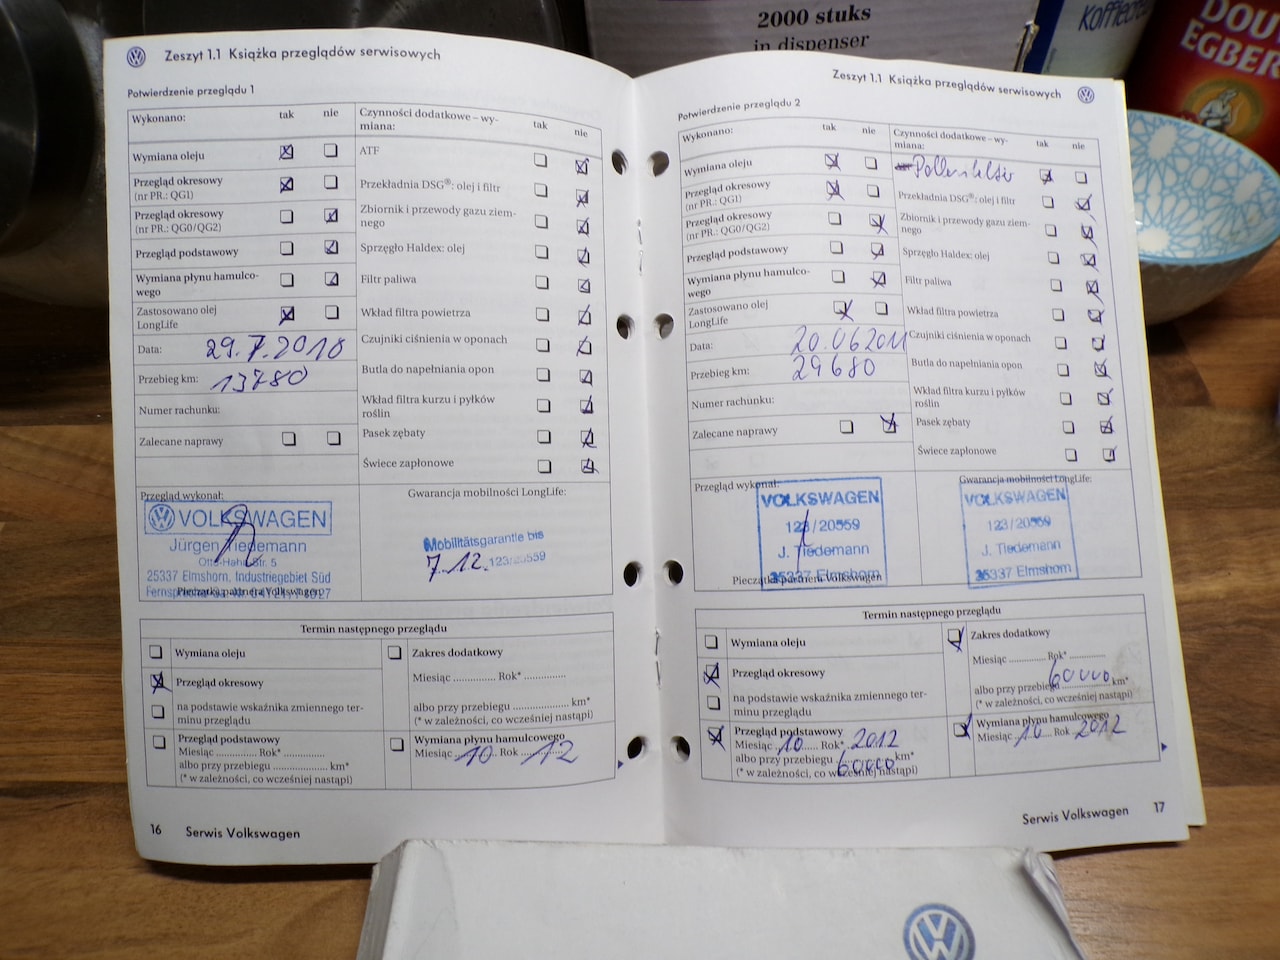 2000 stuks
in dispenser
DOU
EGBER
Zeszyt 1.1 Książka przeglądów serwisowych
Potwierdzenie przeglądu 1
Wykonano: tak nie
Wymiana oleju
Przegląd okresowy
(nr PR.: QG1)
Przegląd okresowy
(nr PR.: QG0/QG2)
Przegląd podstawowy
Wymiana płynu hamulco-
wego
Zastosowano olej
LongLife
Data: 29.7.2010
Przebieg km: 13780
Numer rachunku:
Zalecane naprawy
Czynności dodatkowe – wy-
miana: tak nie
ATF
Przekładnia DSG®: olej i filtr
Zbiornik i przewody gazu ziem-
nego
Sprzęgło Haldex: olej
Filtr paliwa
Wkład filtra powietrza
Czujniki ciśnienia w oponach
Butla do napełniania opon
Wkład filtra kurzu i pyłków
roślin
Pasek zębaty
Świece zapłonowe
Przegląd wykonał:
VOLKSWAGEN
Jürgen Tiedemann
Otto-Hahn-Str. 5
25337 Elmshorn, Industriegebiet Süd
Pieczątka partnera Volkswagen
Gwarancja mobilności LongLife:
Mobilitätsgarantie bis
7.12. 123/20559
Termin następnego przeglądu
Wymiana oleju
Przegląd okresowy
na podstawie wskaźnika zmiennego ter-
minu przeglądu
Przegląd podstawowy
Miesiąc .............. Rok* ..............
albo przy przebiegu .............. km*
(* w zależności, co wcześniej nastąpi)
Zakres dodatkowy
Miesiąc .............. Rok* ..............
albo przy przebiegu .............. km*
(* w zależności, co wcześniej nastąpi)
Wymiana płynu hamulcowego
Miesiąc 10 Rok 12
16 Serwis Volkswagen
Zeszyt 1.1 Książka przeglądów serwisowych
Potwierdzenie przeglądu 2
Wykonano: tak nie
Wymiana oleju
Przegląd okresowy
(nr PR.: QG1)
Przegląd okresowy
(nr PR.: QG0/QG2)
Przegląd podstawowy
Wymiana płynu hamulco-
wego
Zastosowano olej
LongLife
Data: 20.06 2011
Przebieg km: 29680
Numer rachunku:
Zalecane naprawy
Czynności dodatkowe – wy-
miana: tak nie
Pollenfilter
Przekładnia DSG®: olej i filtr
Zbiornik i przewody gazu ziem-
nego
Sprzęgło Haldex: olej
Filtr paliwa
Wkład filtra powietrza
Czujniki ciśnienia w oponach
Butla do napełniania opon
Wkład filtra kurzu i pyłków
roślin
Pasek zębaty
Świece zapłonowe
Przegląd wykonał:
VOLKSWAGEN
123/20559
J. Tiedemann
25337 Elmshorn
Pieczątka partnera Volkswagen
Gwarancja mobilności LongLife:
VOLKSWAGEN
123/20559
J. Tiedemann
25337 Elmshorn
Termin następnego przeglądu
Wymiana oleju
Przegląd okresowy
na podstawie wskaźnika zmiennego ter-
minu przeglądu
Przegląd podstawowy
Miesiąc 10 Rok* 2012
albo przy przebiegu 60000 km*
(* w zależności, co wcześniej nastąpi)
Zakres dodatkowy
Miesiąc .............. Rok* ..............
albo przy przebiegu 60000 km*
(* w zależności, co wcześniej nastąpi)
Wymiana płynu hamulcowego
Miesiąc 10 Rok 2012
Serwis Volkswagen 17